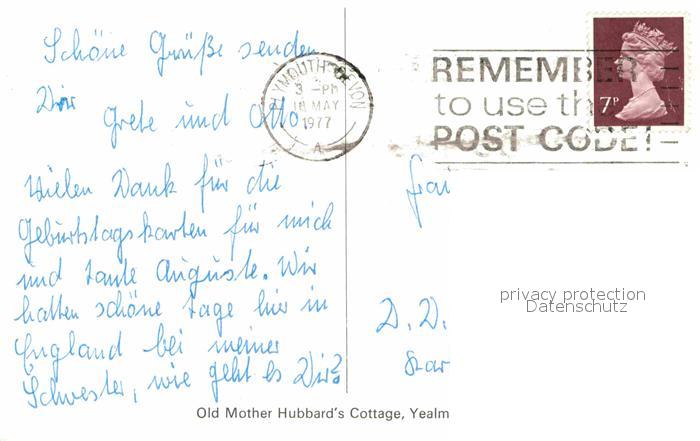 Schöne Grüße senden
Dir
Grete und Otto
Vielen Dank für die
Geburtstagskarten für mich
und Tante Auguste. Wir
hatten schöne Tage hier in
England bei meiner
Schwester, wie geht es Dir?
PLYMOUTH DEVON
3 - PM
18 MAY
1977
A
REMEMBER
to use th
POST CODE!
7P
Frau
D. D.
privacy protection
Datenschutz
Old Mother Hubbard's Cottage, Yealm